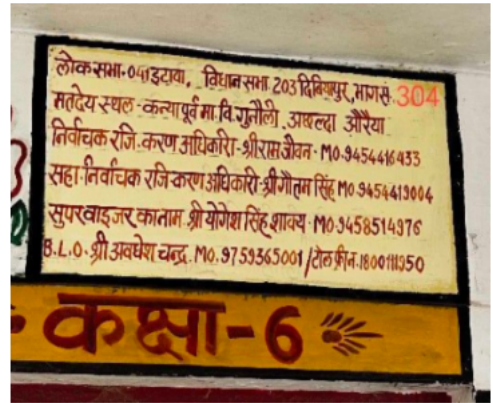 लोकसभा-041 इटावा, विधान सभा 203 दिबियापुर, भाग सं. 304
मतदेय स्थल - कन्या पूर्व मा.वि. गुनौली, अछल्दा औरैया
निर्वाचक रजि. करण अधिकारी-श्री राम जीवन - MO.9454416433
सहा-निर्वाचक रजि-करण अधिकारी-श्री गौतम सिंह MO.9454419004
सुपरवाइजर का नाम श्री योगेश सिंह शाक्य - MO.9458514976
B.L.O-श्री अवधेश चन्द्र. MO.9759365001/टोल फ्रीन.1800111950
कक्षा-6